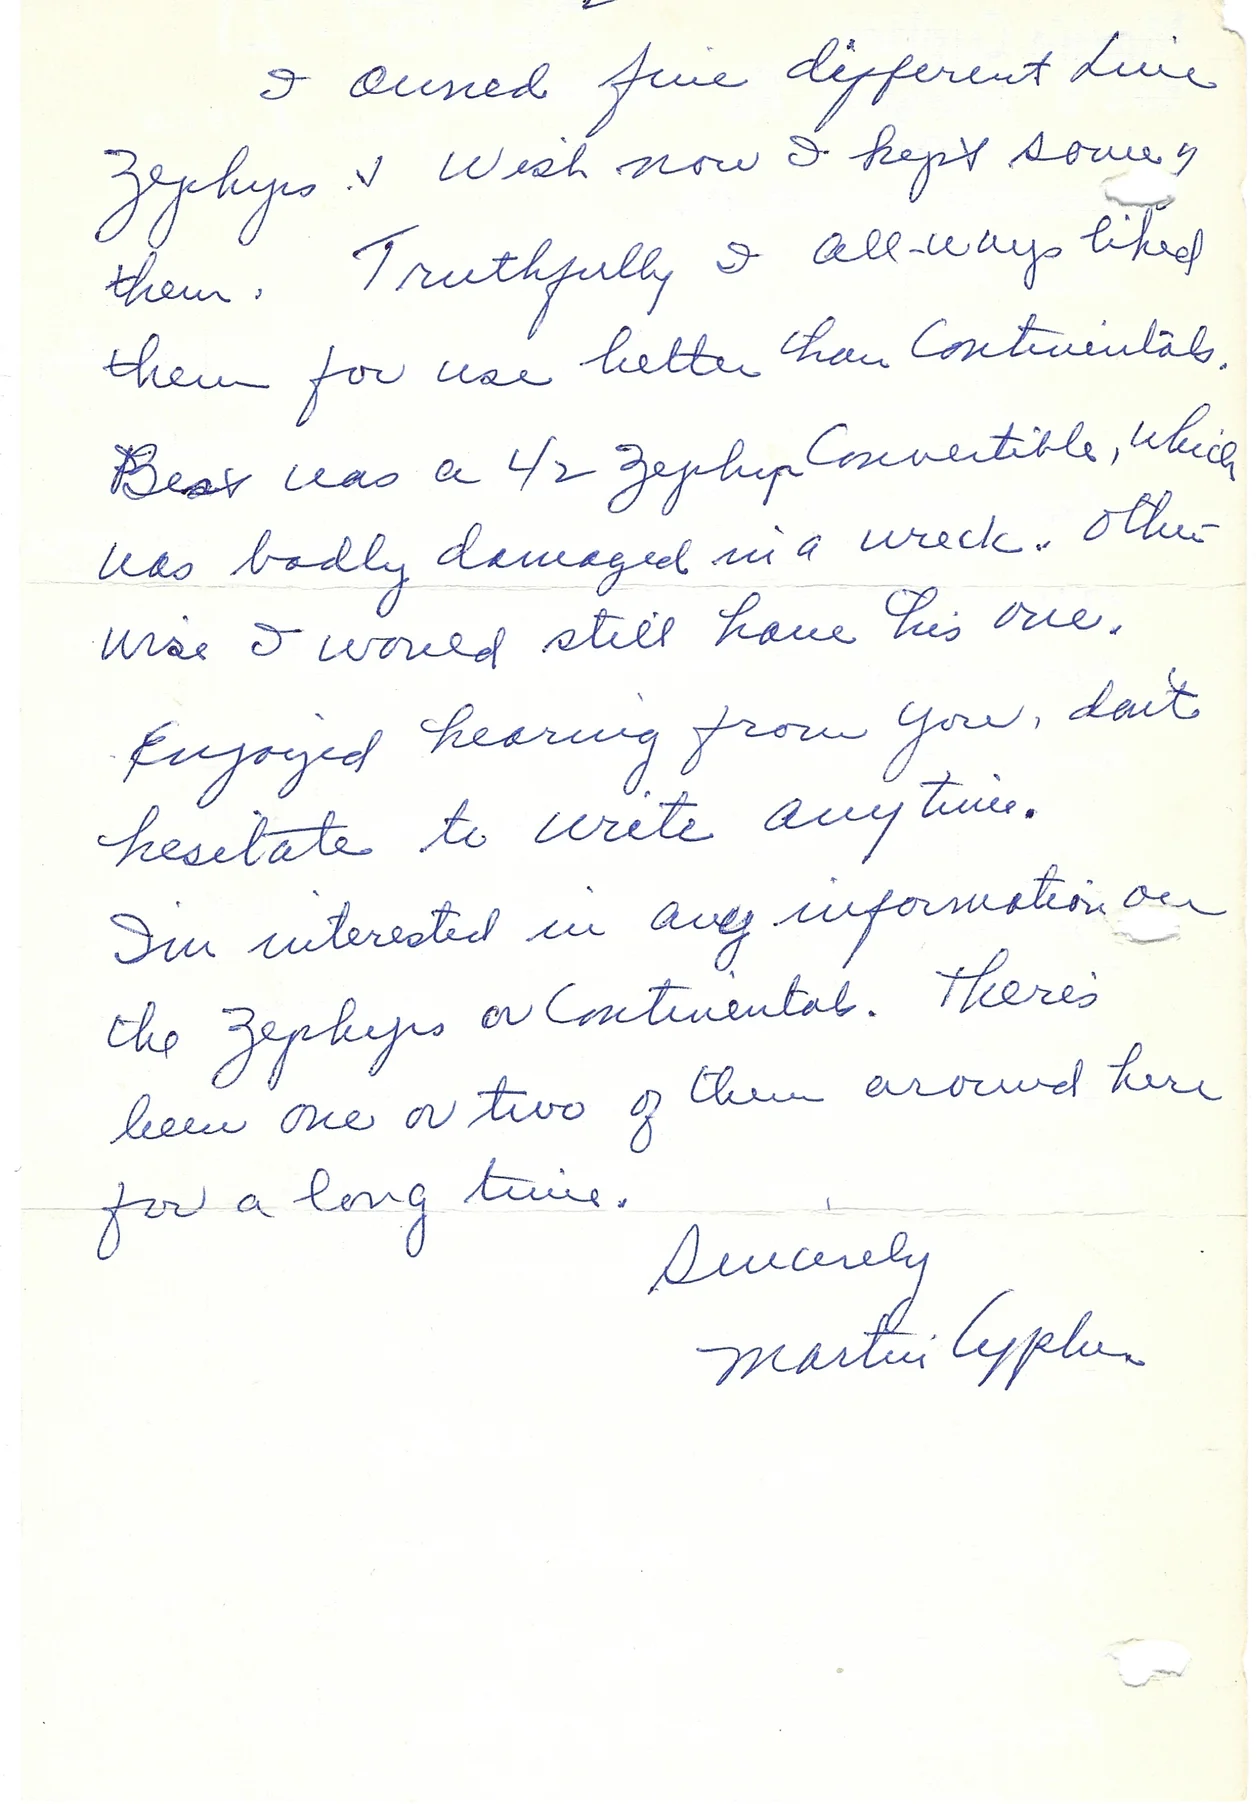 2
I owned five different Linc
Zephyrs & wish now I kept some of
them. Truthfully I all-ways liked
them for use better than Continentals.
Best was a 42 Zephyr Convertible, which
was badly damaged in a wreck. Other
wise I would still have this one.
Enjoyed hearing from you, don't
hesitate to write anytime.
I'm interested in any information on
the Zephyrs or Continentals. There's
been one or two of them around here
for a long time.
Sincerely
Martin Cypher